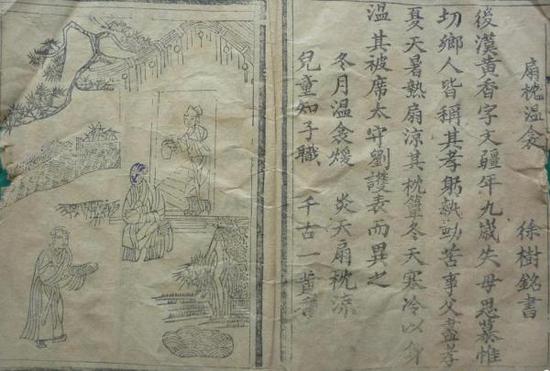 扇枕溫衾 徐樹銘書
後漢黃香字文疆年九歲失母思慕惟
切鄉人皆稱其孝躬執勤苦事父盡孝
夏天暑熱扇涼其枕簟冬天寒冷以身
温其被席太守劉護表而異之
冬月溫衾煖 炎天扇枕涼
兒童知子職 千古一黃香